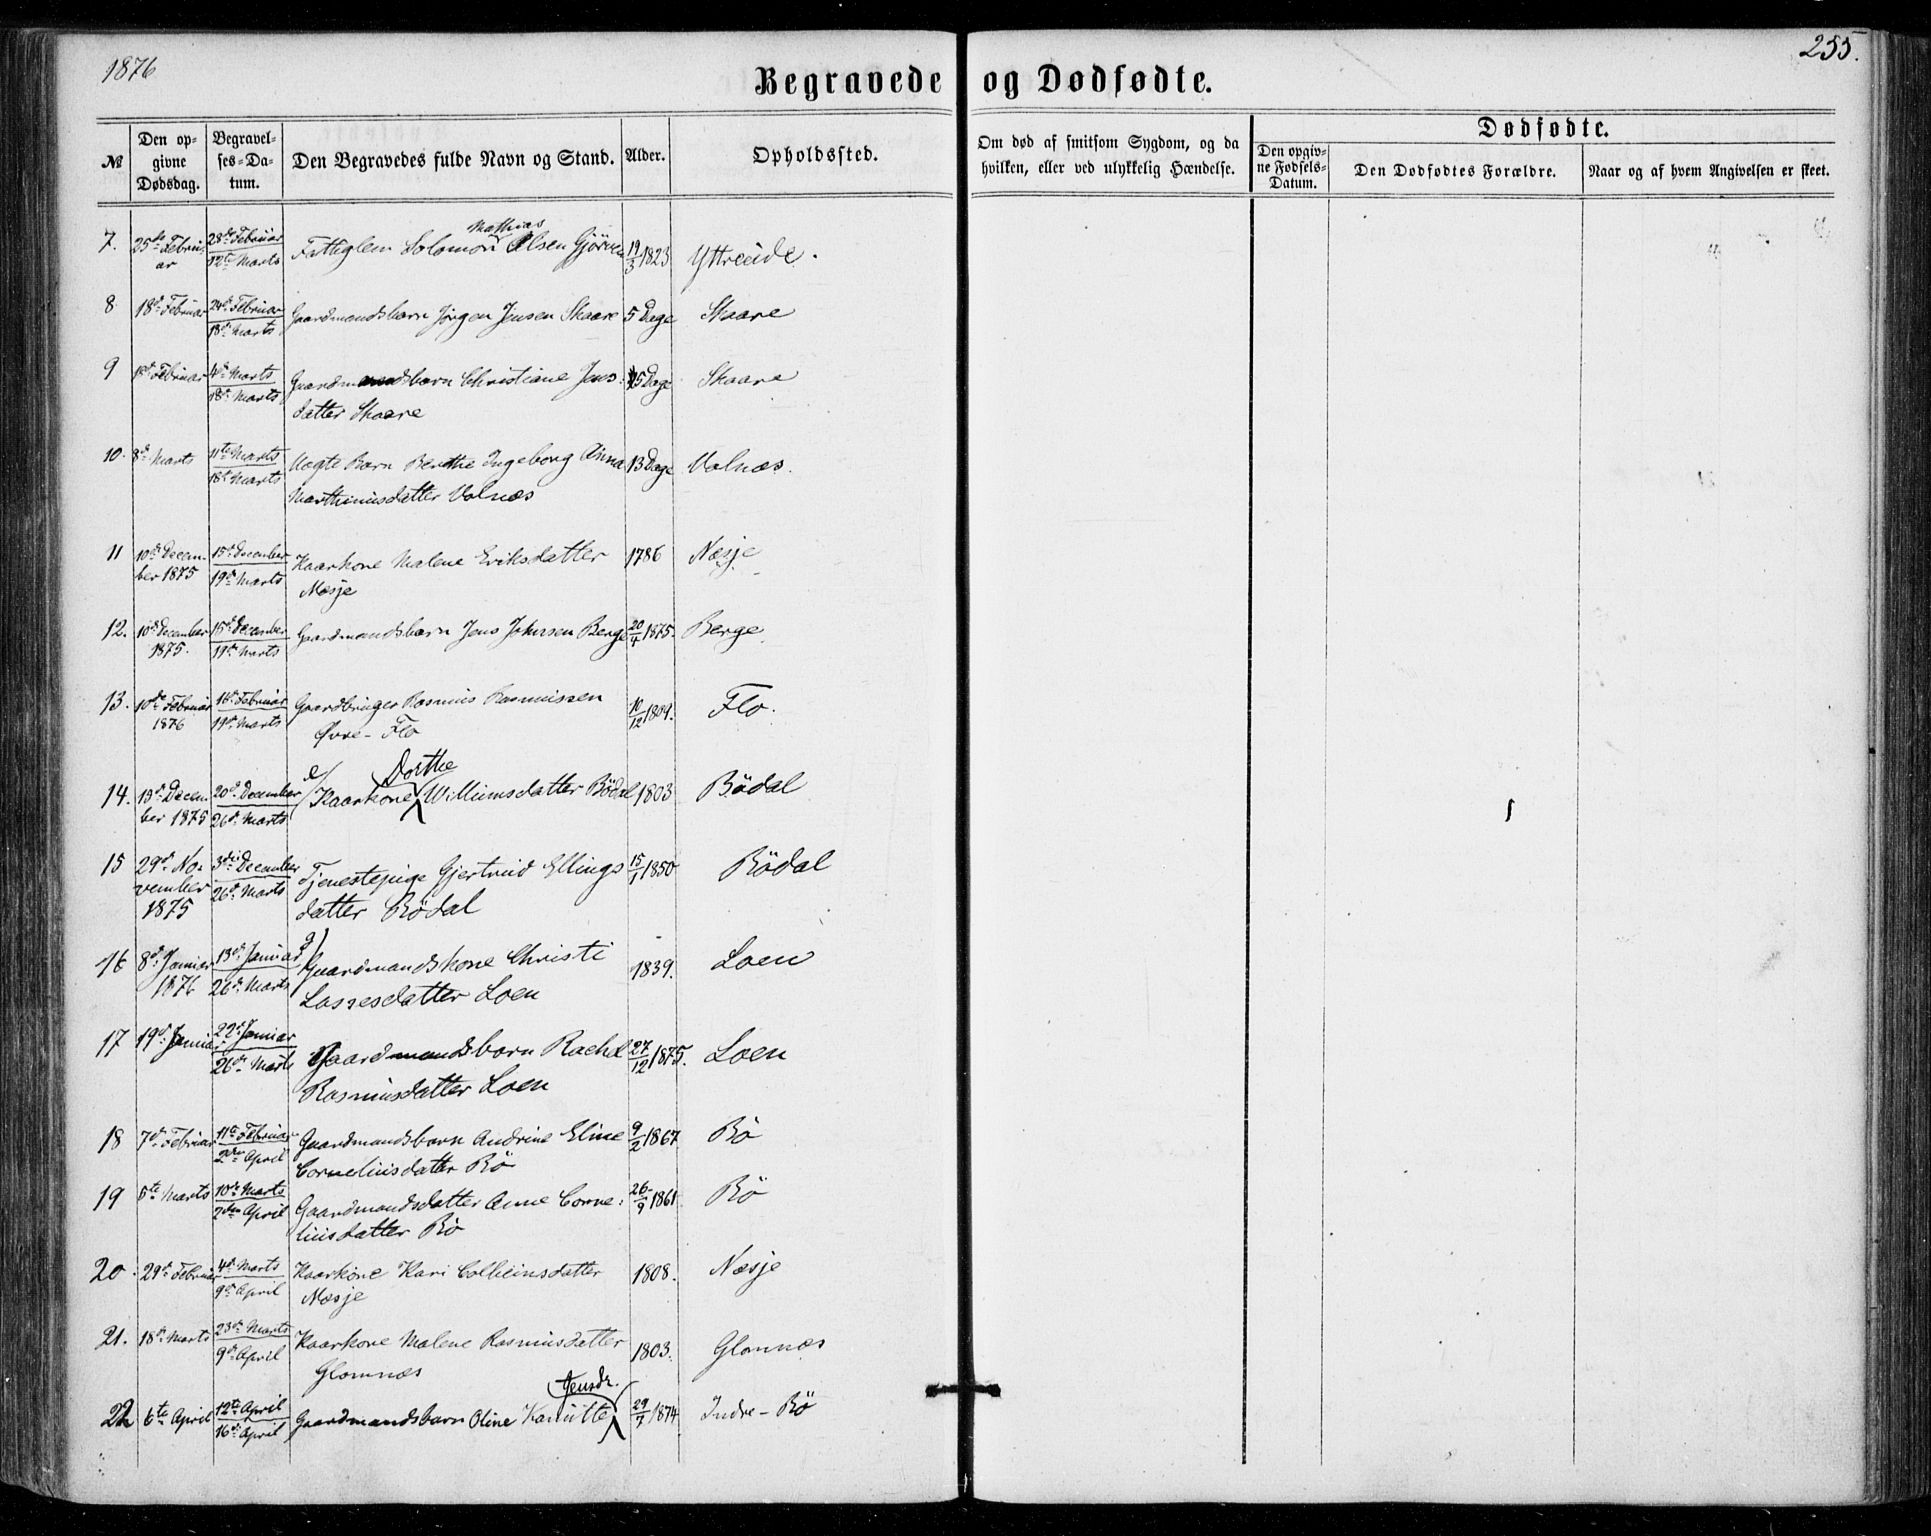 1876
255.
Begravede og Dødfødte.
№
Den opgivne Dødsdag.
Begravelses-Datum.
Den Begravedes fulde Navn og Stand.
Alder.
Opholdssted.
Om død af smitsom Sygdom, og da hvilken, eller ved ulykkelig Hændelse.
Dødfødte.
Den opgivne Fødsels-Datum.
Den Dødfødtes Forældre.
Naar og af hvem Angivelsen er skeet.
7. 25de Februar 28de Februar 12te Marts Fattiglem Solomon Mathias Olsen Gjörven 19/3 1823 Yttreeide.
8 18de Februar 24de Februar 18de Marts Gaardmandsbarn Jørgen Jensen Skaare 5 Dage Skaare
9 18de Februar 4de Marts 18de Marts Gaardmandsbarn Christiane Jens-
datter Skaare 15 Dage Skaare
10. 8de Marts 11te Marts 18de Marts Uægte Barn Berthe Ingeborg Anna
Marthinusdatter Valnæs 13 Dage Valnæs.
11 10de December 1875 15de December 19de Marts Kaarkone Malene Eriksdatter
Næsje 1786 Næsje
12. 10de December 1875. 15de December 19de Marts Gaardmandsbarn Jens Johnsen Berge 20/4 1875. Berge
13. 10de Februar 1876 16de Februar 19de Marts Gaardbruger Rasmus Rasmussen
Øvre-Flo 10/12 1809. Flo.
14. 13de December 1875 20de December 26de Marts e/ Kaarkone Dorthe Willumsdatter Bödal 1803 Bödal
15 29de November 1875 3die December 26de Marts Tjenestepige Gjertrud Ellings
datter Bödal 15/1 1850 Bödal
16 8de Januar 1876 13de Januar 26de Marts g) Gaardmandskone Christi
Lassesdatter Loen 1839. Loen
17 19de Januar 22de Januar 26de Marts Gaardmandsbarn Rachel
Rasmusdatter Loen 27/12 1875. Loen
18 7de Februar 11te Februar 2den April Gaardmandsbarn Andrine Eline
Corneliusdatter Bö 9/2 1867 Bö
19 6te Marts 10de Marts 2den April Gaardmandsdatter Anne Corne-
liusdatter Bö 26/9 1861 Bö
20. 29de Februar 4de Marts 9de April Kaarkone Kari Colbeinsdatter
Næsje 1808. Næsje
21. 18de Marts 23de Marts 9de April Kaarkone Malene Rasmusdatter
Glomnæs 1803. Glomnæs
22 6te April 12te April 16de April Gaardmandsbarn Oline Kanutte Jensdr. 29/7 1874 Indre-Bö